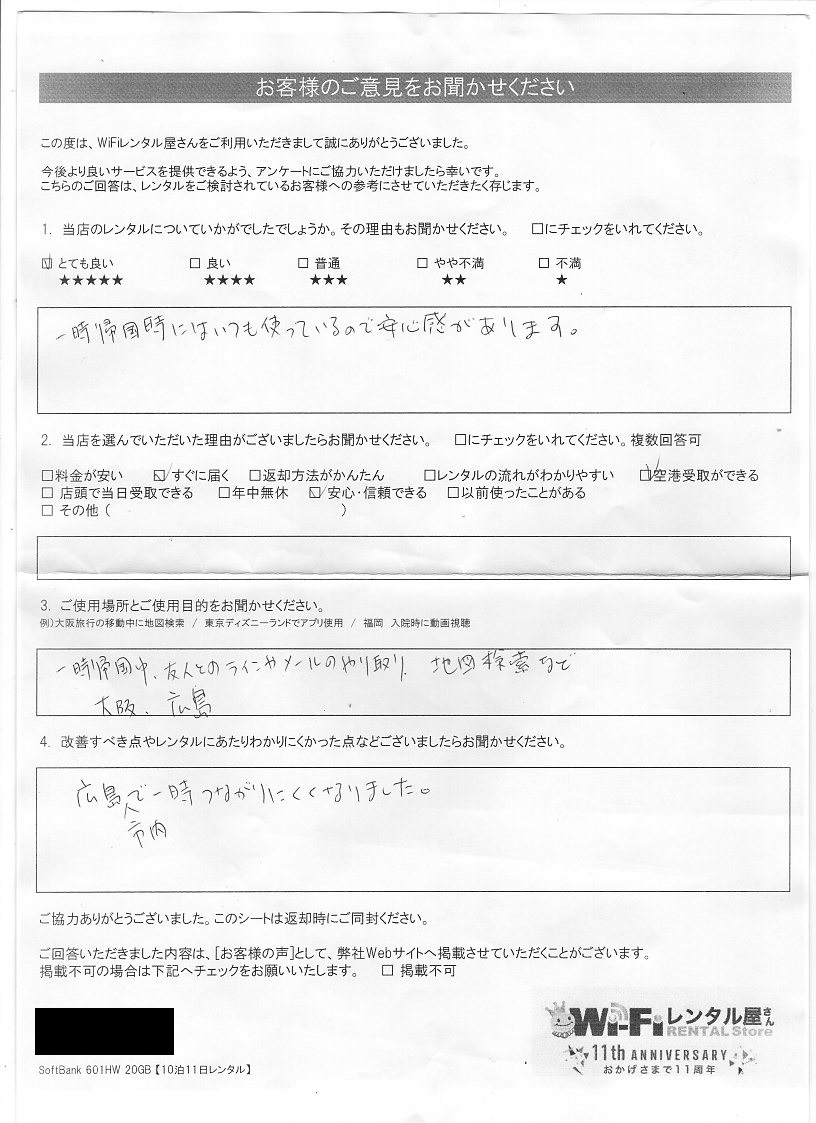 お客様のご意見をお聞かせください
この度は、WiFiレンタル屋さんをご利用いただきまして誠にありがとうございました。
今後より良いサービスを提供できるよう、アンケートにご協力いただけましたら幸いです。
こちらのご回答は、レンタルをご検討されているお客様への参考にさせていただきたく存じます。
1. 当店のレンタルについていかがでしたでしょうか。その理由もお聞かせください。 □にチェックをいれてください。
☑ とても良い □ 良い □ 普通 □ やや不満 □ 不満
★★★★★ ★★★★ ★★★ ★★ ★
一時帰国時にはいつも使っているので安心感があります。
2. 当店を選んでいただいた理由がございましたらお聞かせください。 □にチェックをいれてください。複数回答可
□料金が安い ☑すぐに届く □返却方法がかんたん □レンタルの流れがわかりやすい ☑空港受取ができる
□ 店頭で当日受取できる □年中無休 ☑安心・信頼できる □以前使ったことがある
□ その他 ( )
3. ご使用場所とご使用目的をお聞かせください。
例)大阪旅行の移動中に地図検索 / 東京ディズニーランドでアプリ使用 / 福岡 入院時に動画視聴
一時帰国中、友人とのラインやメールのやり取り、地図検索など
大阪、広島
4. 改善すべき点やレンタルにあたりわかりにくかった点などございましたらお聞かせください。
広島で一時つながりにくくなりました。
市内
ご協力ありがとうございました。このシートは返却時にご同封ください。
ご回答いただきました内容は、[お客様の声]として、弊社Webサイトへ掲載させていただくことがございます。
掲載不可の場合は下記へチェックをお願いいたします。 □ 掲載不可
Wi-Fiレンタル屋さん
RENTAL Store
11th ANNIVERSARY
おかげさまで11周年
SoftBank 601HW 20GB【10泊11日レンタル】